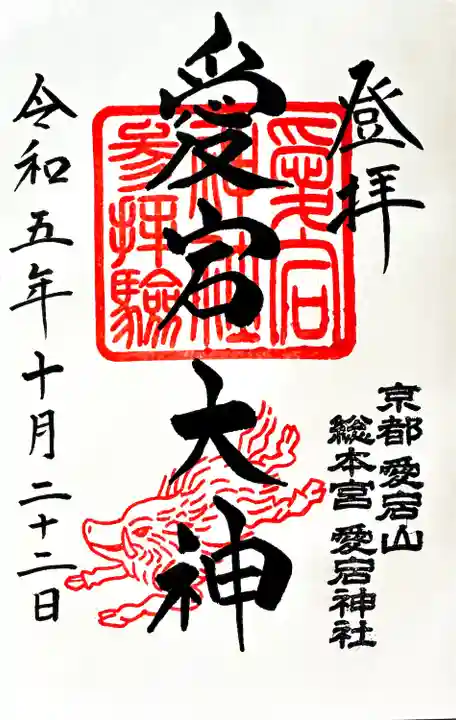 登拝
京都 愛宕山
総本宮 愛宕神社
愛宕大神
愛宕
神社
参拝驗
令和五年十月二十二日